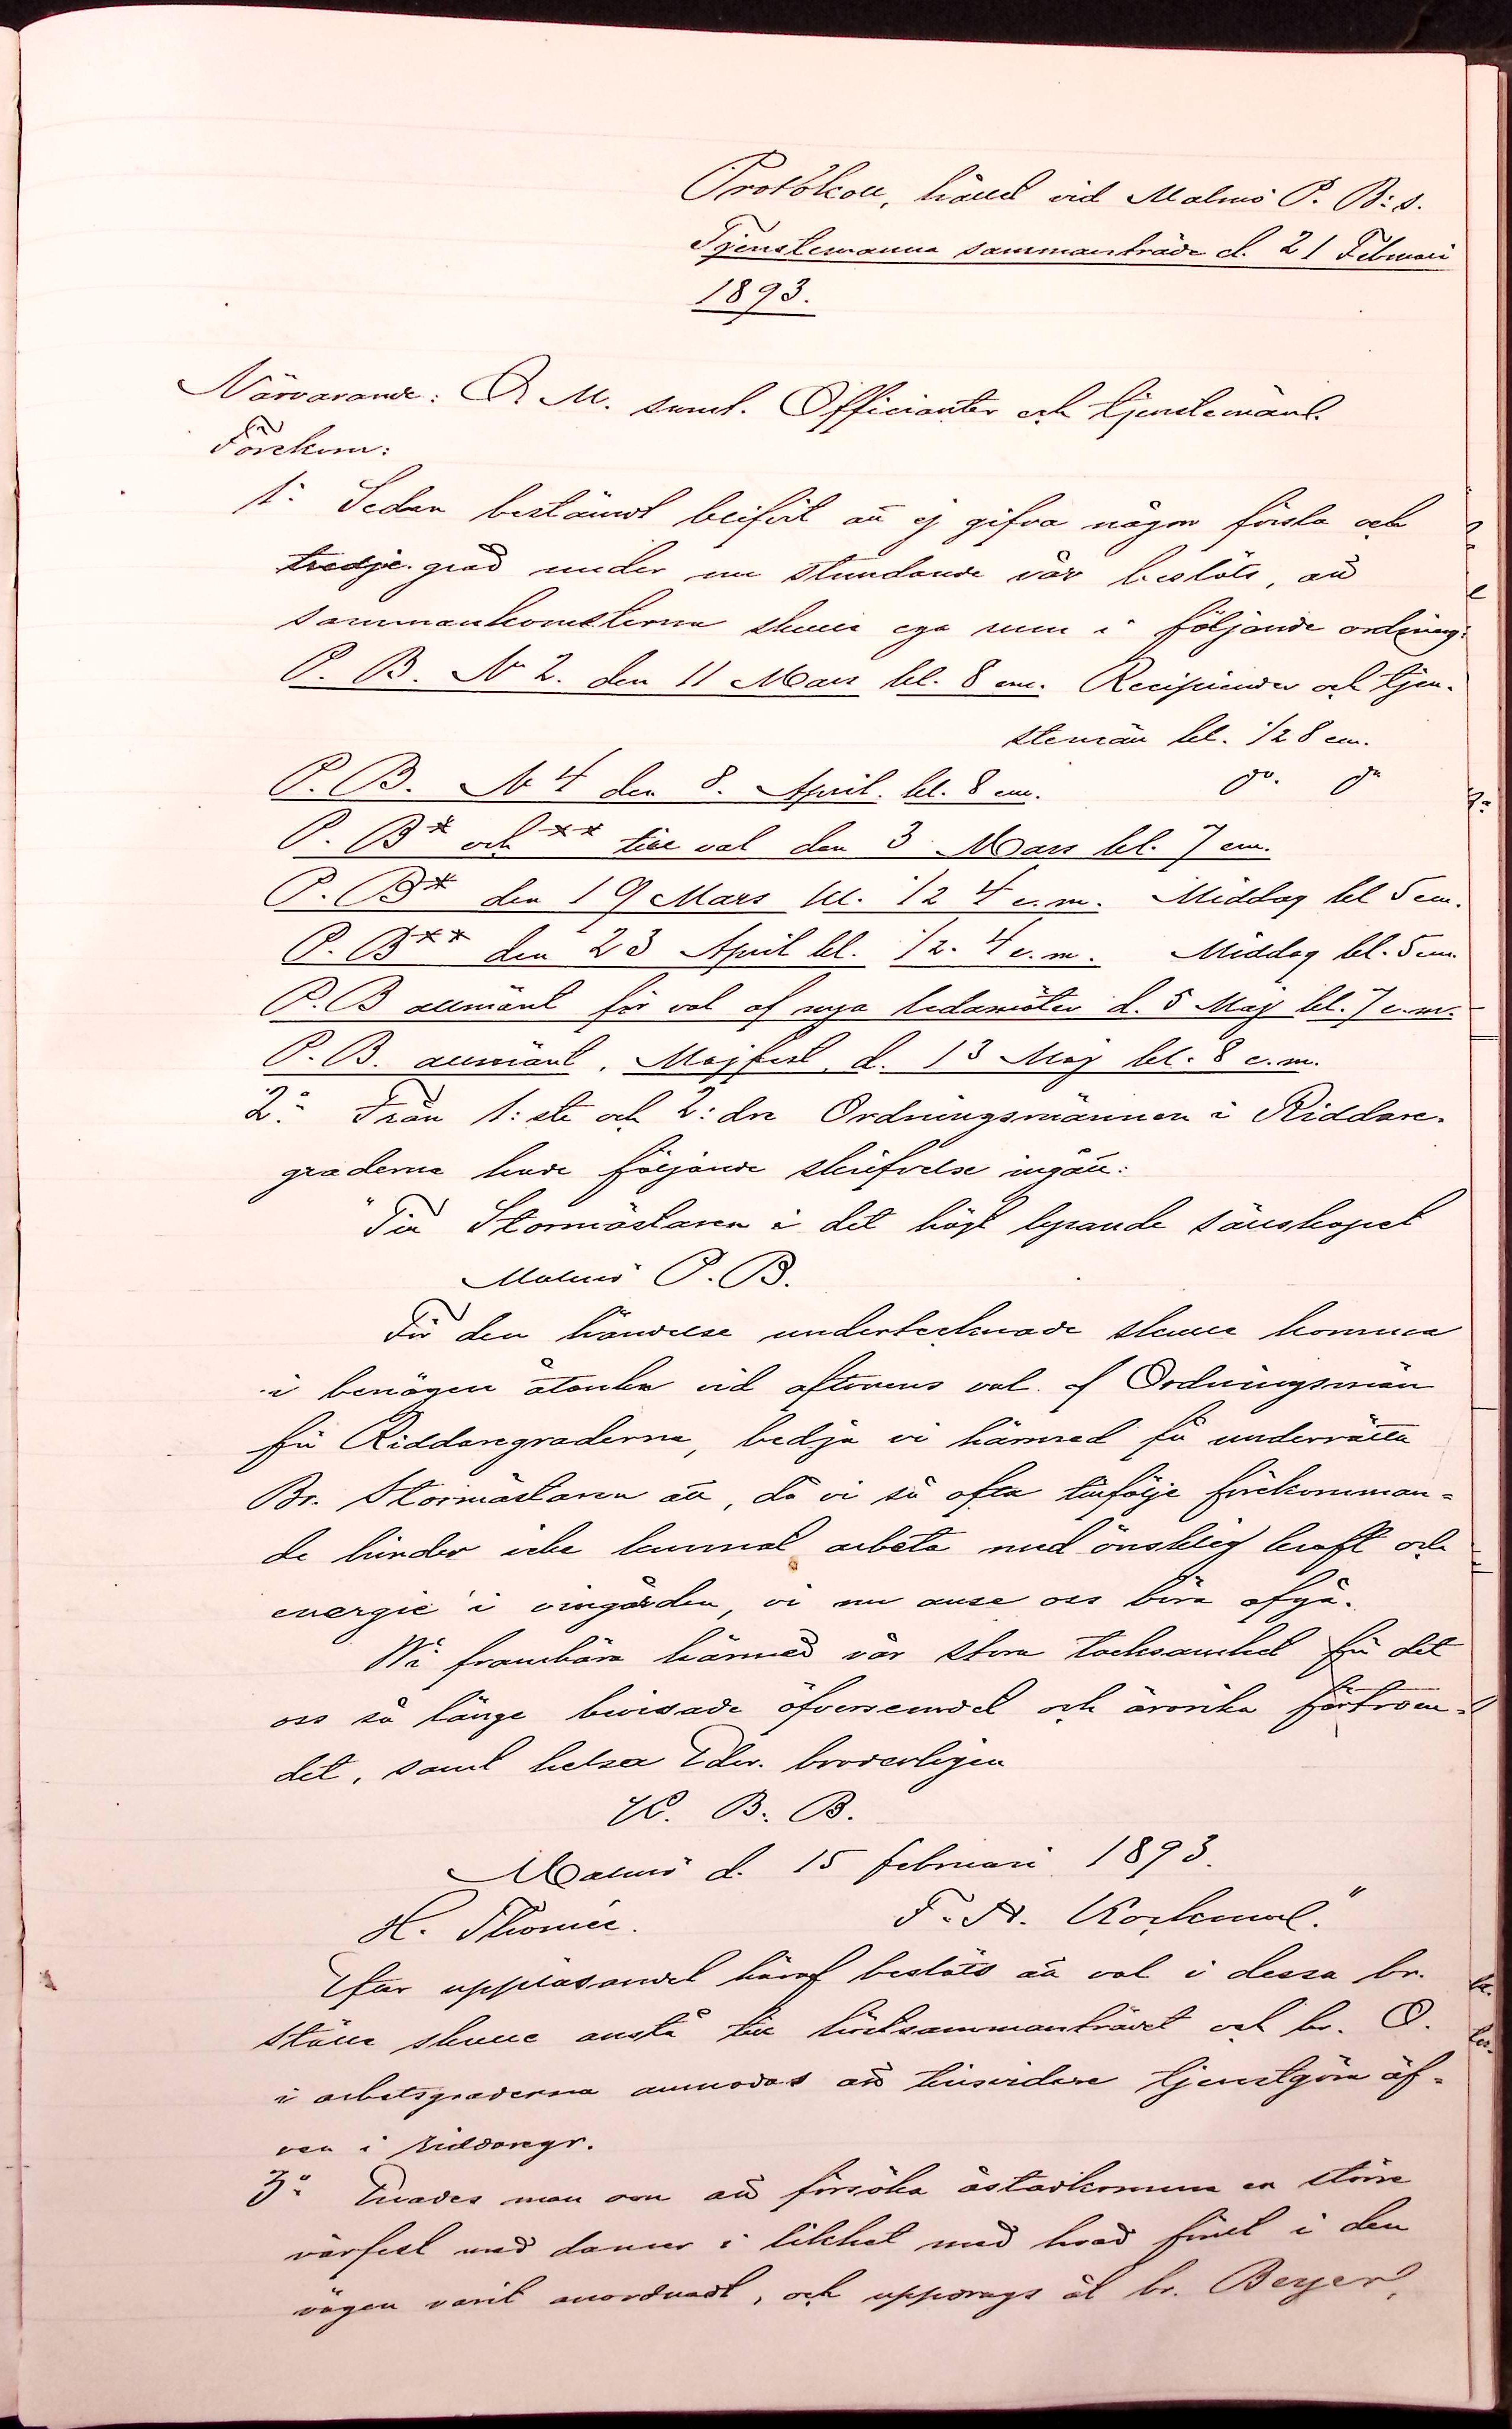 Protokoll, hållet vid Malmö P. B:s.
Tjenstemanna sammanträde d. 21 Februari
1893.
Närvarande: O. M. samt. Officianter och tjenstemän.
Förekom:
1o. Sedan bestämdt blifvit att ej gifva någon första och
tredje grad under nu stundande vår beslöts, att
sammankomsterna skulle ega rum i följande ordning:
P. B. No 2. den 11 Mars kl. 8 em. Recipiender och tjen-
stemän kl. 1/2 8 em.
P. B. No 4 den 8. April. kl. 8 em. do. do
P. B* och ** till val den 3 Mars kl. 7 em.
P. B* den 19 Mars kl. 1/2 4 e.m. Middag kl 5 em.
P. B** den 23 April kl. 1/2. 4 e.m. Middag kl. 5 em.
P. B allmänt för val af nya ledamöter d. 5 Maj kl. 7 e.m.
P. B. allmänt, Majfest, d. 13 Maj kl. 8 e.m.
2o. Från 1:ste och 2:dre Ordningsmännen i Riddare-
graderna hade följande skrifvelse ingått:
"Till Stormästaren i det högt lysande sällskapet
Malmö P. B.
För den händelse undertecknade skulle komma
i benägen åtanke vid aftonens val af Ordningsmän
för Riddaregraderna, bedja vi härmed få underrätta
Br. Stormästaren att, då vi så ofta tillfölje förekomman-
de hinder icke kunnat arbeta med önsklig kraft och
energie i vingården, vi nu anse oss böra afgå.
Wi frambära härmed vår stora tacksamhet för det
oss så länge bevisade öfverseendet och ärorika förtroen-
det, samt helsa Eder broderligen
H. B. B.
Malmö d. 15 februari 1893.
H. Thomée. F. A. Kockum."
Efter uppläsandet häraf beslöts att val i dessa br.
ställe skulle anstå till höstsammanträdet och br. O.
i arbetsgraderna anmodas att tillsvidare tjenstgöra äf-
ven i riddaregr.
3o. Enades man om att försöka åstadkomma en större
vårfest med damer i likhet med hvad förut i den
vägen varit anordnadt, och uppdrogs åt br. Beyer,